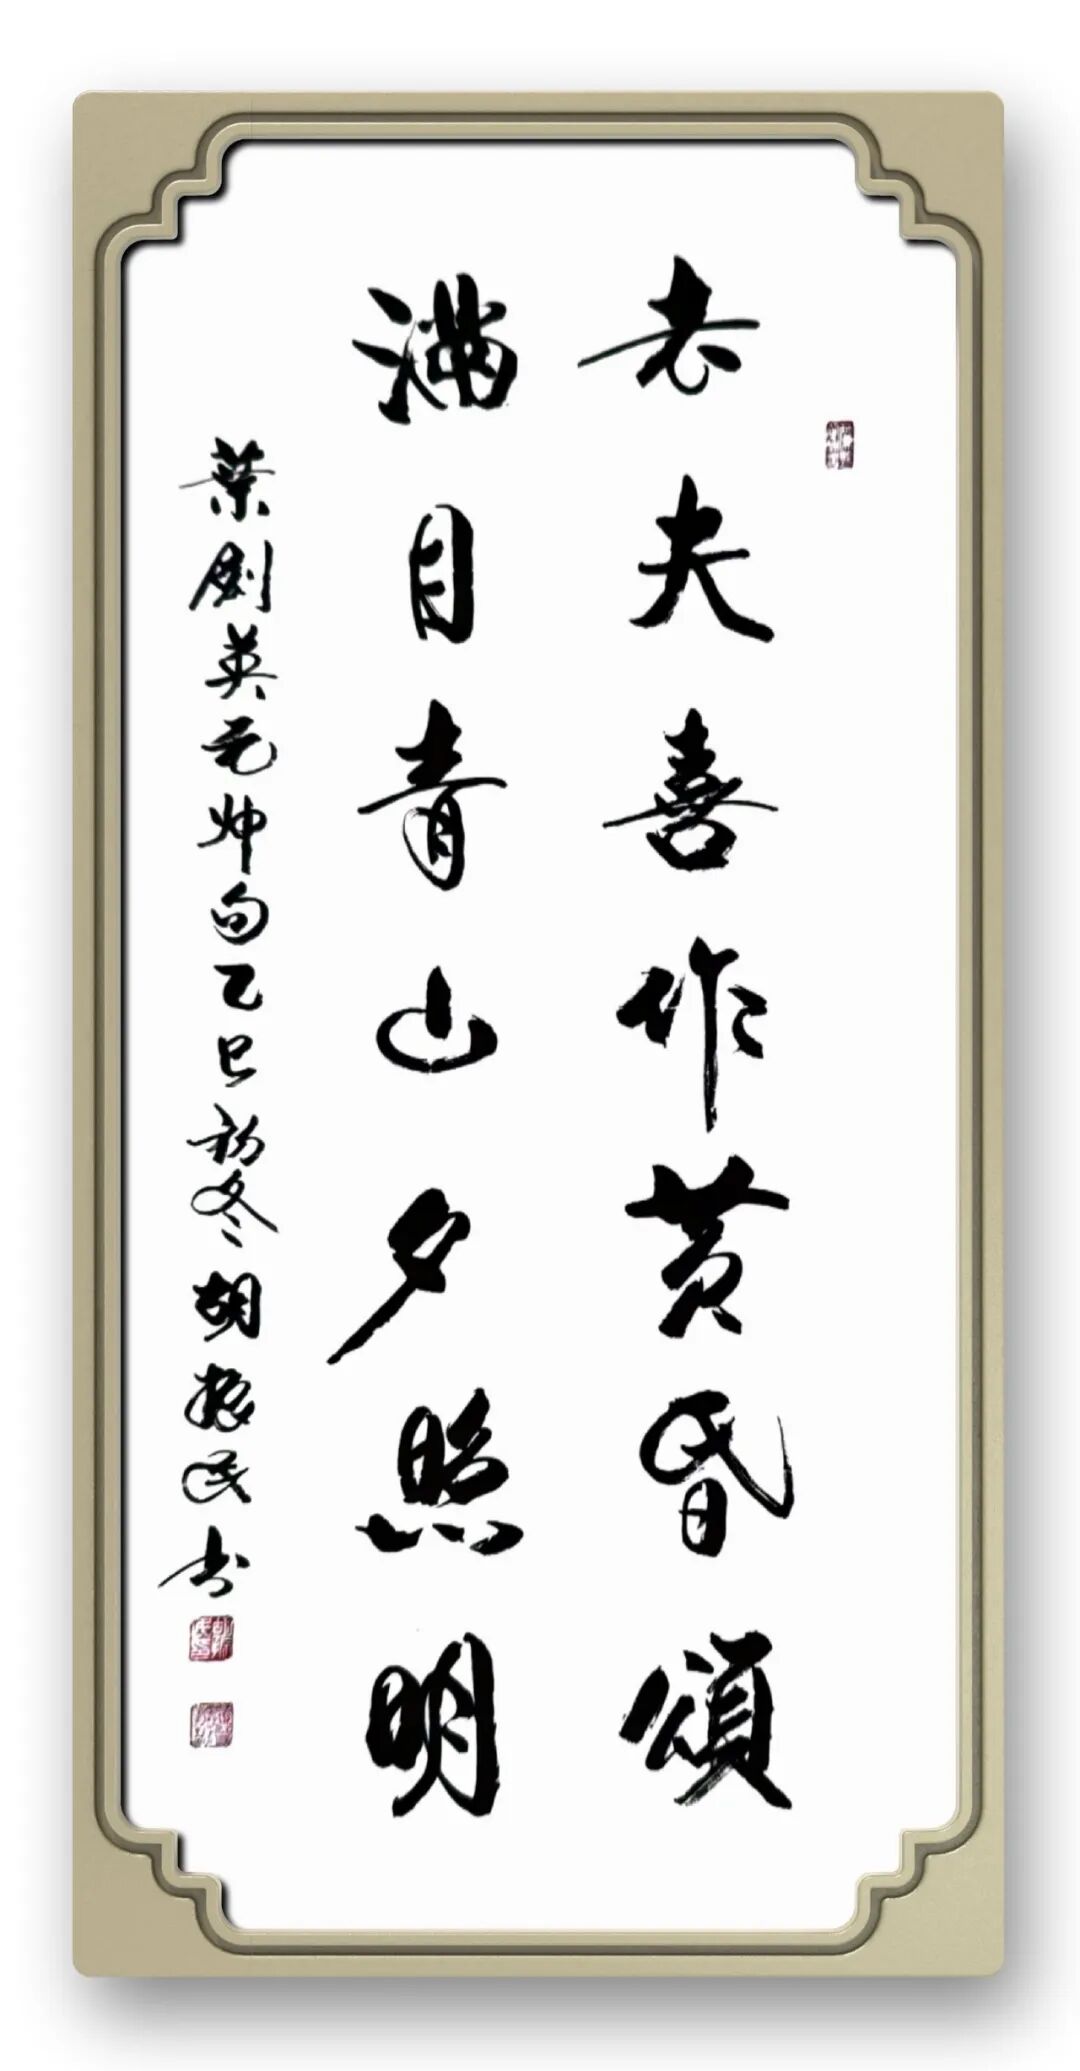 老夫喜作黄昏頌
满目青山夕照明
葉劍英元帅句乙巳初冬胡振民书